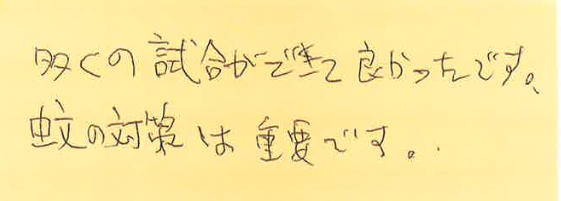 多くの試合ができて良かったです。
蚊の対策は重要です。